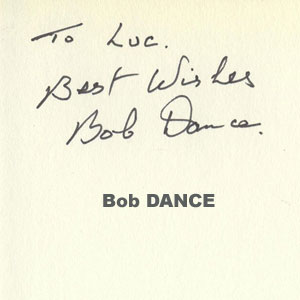 To Luc.
Best Wishes
Bob Dance.
Bob DANCE